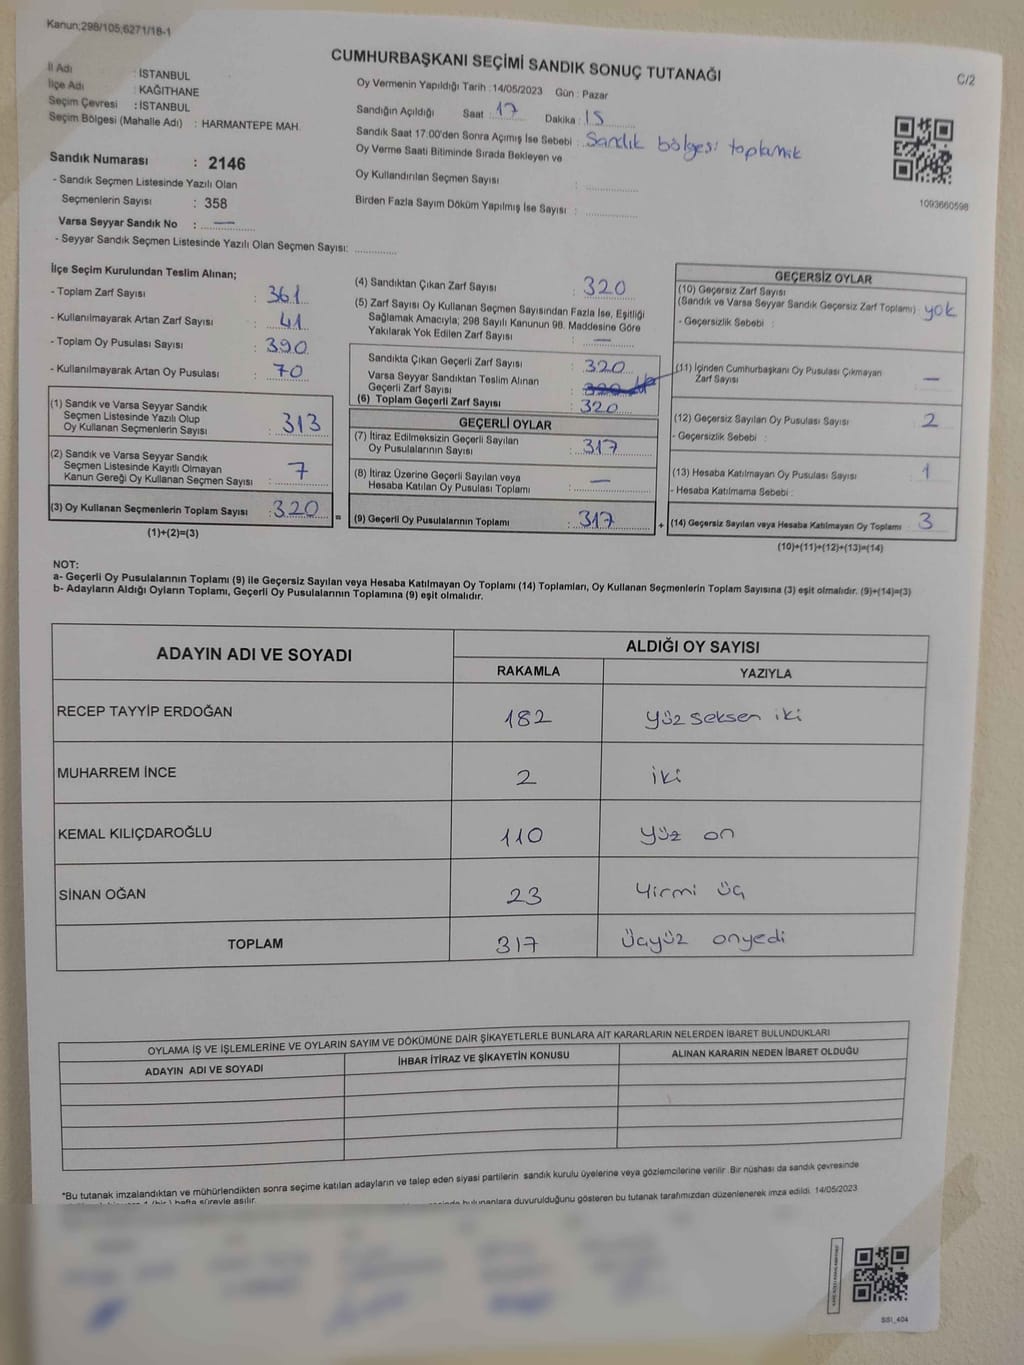 Kanun;298/105,6271/18-1
CUMHURBAŞKANI SEÇİMİ SANDIK SONUÇ TUTANAĞI
C/2
İl Adı : İSTANBUL
İlçe Adı : KAĞITHANE
Seçim Çevresi : İSTANBUL
Seçim Bölgesi (Mahalle Adı) : HARMANTEPE MAH.
Oy Vermenin Yapıldığı Tarih : 14/05/2023 Gün : Pazar
Sandığın Açıldığı Saat : 17 Dakika : 15
Sandık Saat 17:00'den Sonra Açımış İse Sebebi : Sandık bölgesi toplamık
Oy Verme Saati Bitiminde Sırada Bekleyen ve
Oy Kullandırılan Seçmen Sayısı :
Birden Fazla Sayım Döküm Yapılmış İse Sayısı :
1093660598
Sandık Numarası : 2146
- Sandık Seçmen Listesinde Yazılı Olan
Seçmenlerin Sayısı : 358
Varsa Seyyar Sandık No : —
- Seyyar Sandık Seçmen Listesinde Yazılı Olan Seçmen Sayısı:
İlçe Seçim Kurulundan Teslim Alınan;
- Toplam Zarf Sayısı : 361
- Kullanılmayarak Artan Zarf Sayısı : 41
- Toplam Oy Pusulası Sayısı : 390
- Kullanılmayarak Artan Oy Pusulası : 70
(1) Sandık ve Varsa Seyyar Sandık
Seçmen Listesinde Yazılı Olup
Oy Kullanan Seçmenlerin Sayısı : 313
(2) Sandık ve Varsa Seyyar Sandık
Seçmen Listesinde Kayıtlı Olmayan
Kanun Gereği Oy Kullanan Seçmen Sayısı : 7
(3) Oy Kullanan Seçmenlerin Toplam Sayısı : 320
(1)+(2)=(3)
(4) Sandıktan Çıkan Zarf Sayısı : 320
(5) Zarf Sayısı Oy Kullanan Seçmen Sayısından Fazla İse, Eşitliği
Sağlamak Amacıyla; 298 Sayılı Kanunun 98. Maddesine Göre
Yakılarak Yok Edilen Zarf Sayısı : —
Sandıkta Çıkan Geçerli Zarf Sayısı : 320
Varsa Seyyar Sandıktan Teslim Alınan
Geçerli Zarf Sayısı :
(6) Toplam Geçerli Zarf Sayısı : 320
GEÇERLİ OYLAR
(7) İtiraz Edilmeksizin Geçerli Sayılan
Oy Pusulalarının Sayısı : 317
(8) İtiraz Üzerine Geçerli Sayılan veya
Hesaba Katılan Oy Pusulası Toplamı : —
=
(9) Geçerli Oy Pusulalarının Toplamı : 317
+
GEÇERSİZ OYLAR
(10) Geçersiz Zarf Sayısı
(Sandık ve Varsa Seyyar Sandık Geçersiz Zarf Toplamı) : yok
- Geçersizlik Sebebi :
(11) İçinden Cumhurbaşkanı Oy Pusulası Çıkmayan
Zarf Sayısı : —
(12) Geçersiz Sayılan Oy Pusulası Sayısı : 2
- Geçersizlik Sebebi :
(13) Hesaba Katılmayan Oy Pusulası Sayısı : 1
- Hesaba Katılmama Sebebi :
(14) Geçersiz Sayılan veya Hesaba Katılmayan Oy Toplamı : 3
(10)+(11)+(12)+(13)=(14)
NOT:
a- Geçerli Oy Pusulalarının Toplamı (9) ile Geçersiz Sayılan veya Hesaba Katılmayan Oy Toplamı (14) Toplamları, Oy Kullanan Seçmenlerin Toplam Sayısına (3) eşit olmalıdır. (9)+(14)=(3)
b- Adayların Aldığı Oyların Toplamı, Geçerli Oy Pusulalarının Toplamına (9) eşit olmalıdır.
ADAYIN ADI VE SOYADI
ALDIĞI OY SAYISI
RAKAMLA YAZIYLA
RECEP TAYYİP ERDOĞAN 182 yüz seksen iki
MUHARREM İNCE 2 iki
KEMAL KILIÇDAROĞLU 110 yüz on
SİNAN OĞAN 23 Yirmi üç
TOPLAM 317 Üçyüz onyedi
OYLAMA İŞ VE İŞLEMLERİNE VE OYLARIN SAYIM VE DÖKÜMÜNE DAİR ŞİKAYETLERLE BUNLARA AİT KARARLARIN NELERDEN İBARET BULUNDUKLARI
ADAYIN ADI VE SOYADI İHBAR İTİRAZ VE ŞİKAYETİN KONUSU ALINAN KARARIN NEDEN İBARET OLDUĞU
*Bu tutanak imzalandıktan ve mühürlendikten sonra seçime katılan adayların ve talep eden siyasi partilerin sandık kurulu üyelerine veya gözlemcilerine verilir. Bir nüshası da sandık çevresinde
hafta süreyle asılır. bulunanlara duyurulduğunu gösteren bu tutanak tarafımızdan düzenlenerek imza edildi. 14/05/2023
SSI_404